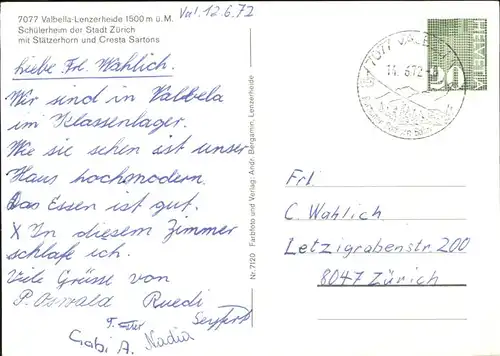 7077 Valbella-Lenzerheide 1500 m ü.M.
Schülerheim der Stadt Zürich
mit Stätzerhorn und Cresta Sartons
Val. 12.6.72
Liebe Frl. Wahlich.
Wir sind in Valbela
im Klassenlager.
Wie sie sehen ist unser
Haus hochmodern.
Das Essen ist gut.
X In diesem Zimmer
schlafe ich.
Viele Grüsse von
P. Oswald Ruedi
Seyfert
Gabi A. Nadia
Nr. 7120 Farbfoto und Verlag: Andr. Bergamin, Lenzerheide
7077 VALBELLA
14.6.72
HELVETIA
20
Frl.
C. Wahlich
Letzigrabenstr. 200
8047 Zürich